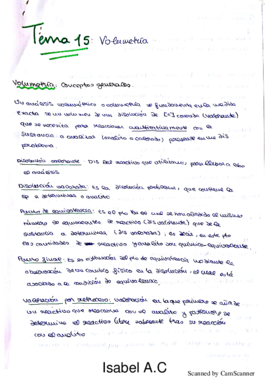 Tema 15: Volumetría
Volumetría: Conceptos generales.
Un análisis volumétrico o volumetría se fundamenta en la medida
exacta de un volumen de una disolución de [ ] conocida (valorante)
que se necesita para reaccionar cuantitativamente con la
sustancia a analizar (analito o valorado), presente en una dis
problema.
Disolución valorante: Dis del reactivo que utilizamos para llevar a cabo
el análisis
Disolución valorada: Es la disolución problema, que contiene la
sp a determinar o analito
Punto de equivalencia: Es el pto en el cual se ha añadido el mismo
número de equivalentes de reactivo (dis valorante) que de la
sustancia a determinar (dis valorada), es decir, en este pto
las cantidades de reactivo y analito son químicamente equivalentes.
Punto final: Es la estimación del pto de equivalencia mediante la
observación de un cambio físico en la disolución, el cual está
asociado a la condición de equivalencia.
Valoración por retroceso: Valoración en la que primero se añade
un reactivo que reacciona con el analito y posteriormente se
determina el reactivo libre sobrante tras su reacción
con el analito
Isabel A.C
Scanned by CamScanner